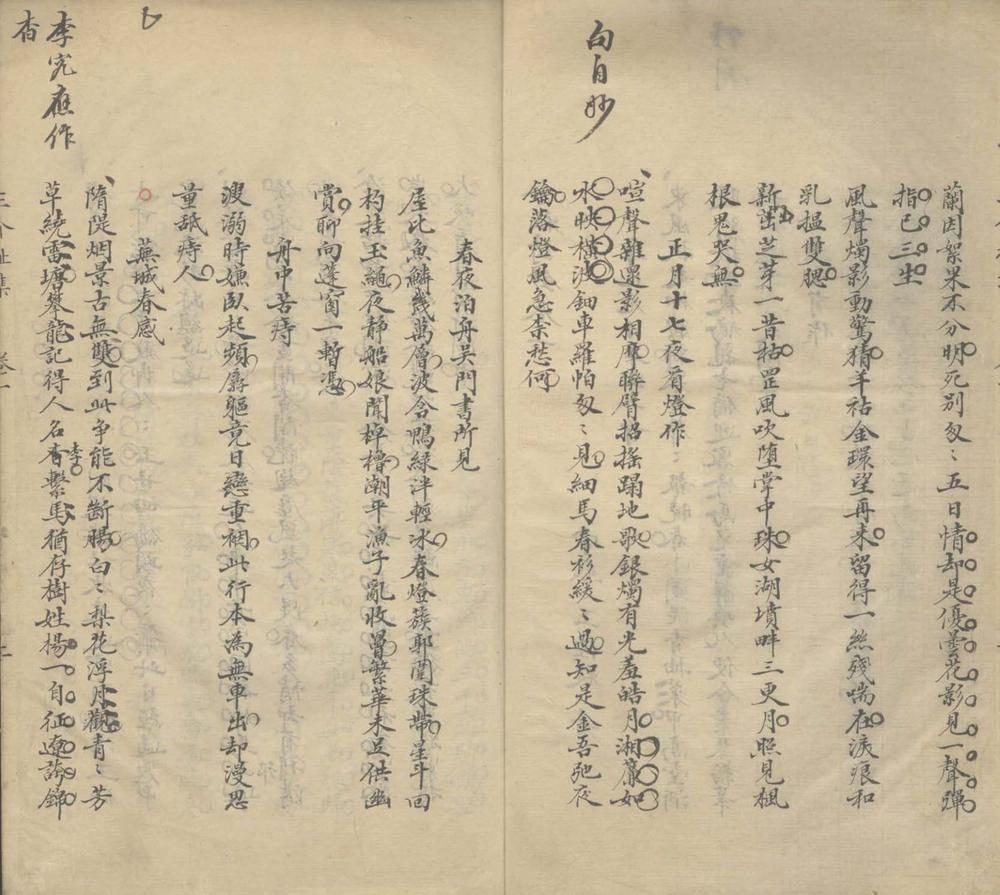 蘭因絮果不分明死別匆〻五日情却是優曇花影見一聲彈
指已三生
風聲燭影動驚猜羊祜金環望再來留得一絲殘喘在淚痕和
乳揾雙腮
新茁芝芽一昔枯罡風吹墮掌中珠女湖墳畔三更月照見楓
根鬼哭無
正月十七夜看燈作
喧聲雜遝影相摩聯臂招搖蹋地歌銀燭有光羞皓月湘簾如
水映橫波鈿車羅帕匆〻見細馬春衫緩〻過知是金吾弛夜
鑰落燈風急柰愁何
句自妙
春夜泊舟吳門書所見
屋比魚鱗幾萬層波含鴨綠泮輕冰春燈簇郭圍珠帶星斗回
杓挂玉繩夜靜船娘閒棹櫓潮平漁子亂收罾繁華未足供幽
賞聊向蓬窗一暫憑
舟中苦痔
溲溺時嫌臥起頻孱軀竟日戀重裀此行本為無車出却漫思
量舐痔人
蕪城春感
隋隄烟景古無雙到此爭能不斷腸白〻梨花浮月觀青〻芳
草繞雷塘攀龍記得人名李繫馬猶存樹姓楊一自征遼誇錦
李
李究應作
杏